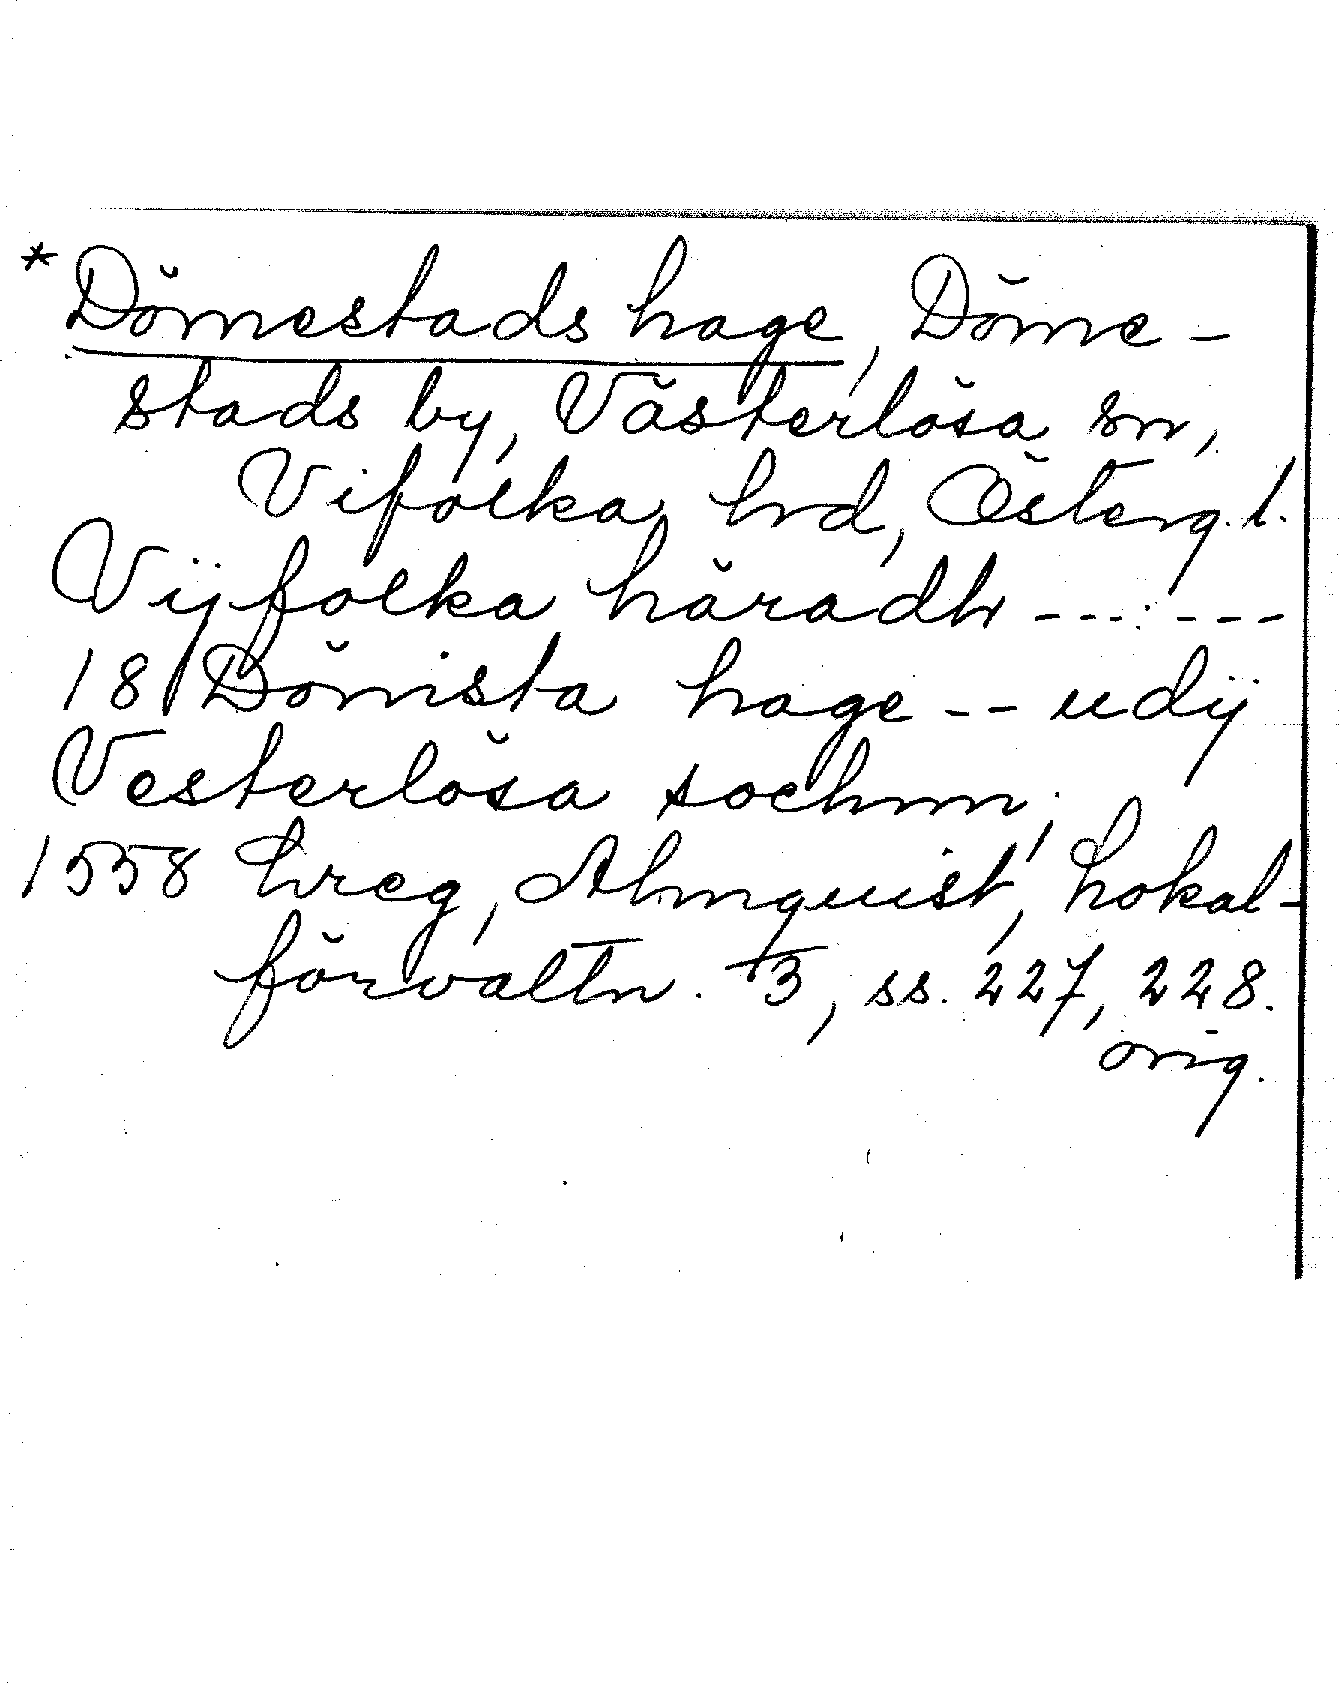 * Dömestads hage, Döme-
stads by, Västerlösa sn,
Vifolka hd, Österg. l.
Vijfolka häradh ------
18 Dömista hage -- udij
Vesterlösa sochnn;
1558 Lreg, Almquist, Lokal-
förvaltn. 3, ss. 227, 228.
orig.